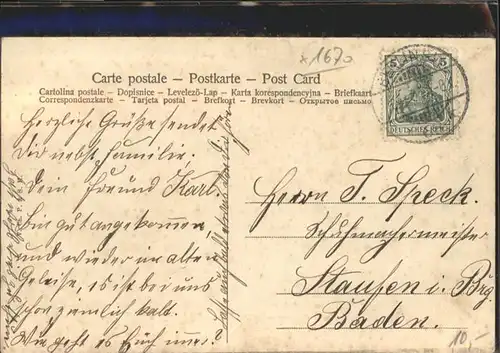 x1670
Carte postale – Postkarte – Post Card
Cartolina postale – Dopisnice – Levelező-Lap – Karta korespondencyjna – Briefkaart
Correspondenzkarte – Tarjeta postal – Brefkort – Brevkort – Открытое письмо
5 5
DEUTSCHES REICH
Herzliche Grüße sendet
Dir nebst Familie.
Dein Freund Karl.
Bin gut angekommen,
und wieder im alten
Geleise, es ist bei uns
schon ziemlich kalt.
Wie geht es Euch immer?
Herrn F. Speck.
Schuhmachermeister
Staufen i. Brg
Baden.
10,-